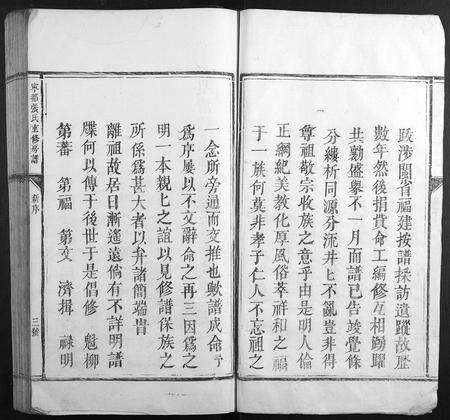 跋涉閩省福建按譜採訪遺蹤故歷
數年然後捐貲命工編修互相踴躍
共勷盛舉不一月而譜已告竣覺條
分縷析同源分派井上不亂豈非得
尊祖敬宗收族之意乎由是明人倫
正綱紀美教化厚風俗萃祥和之福
于一族何莫非孝子仁人不忘祖之
一念所旁通而交推也歟譜成命予
為序屢以不文辭命之再三因為之
明一本親上之誼以見修譜保族之
所係為甚大者以弁諸簡端旹
離祖故居日漸遙遠倘有不詳明譜
牒何以傳于後世于是倡修 魁柳
第蕃 第福 第交 濟揖 祿明
寧都張氏重修房譜 新序 三號